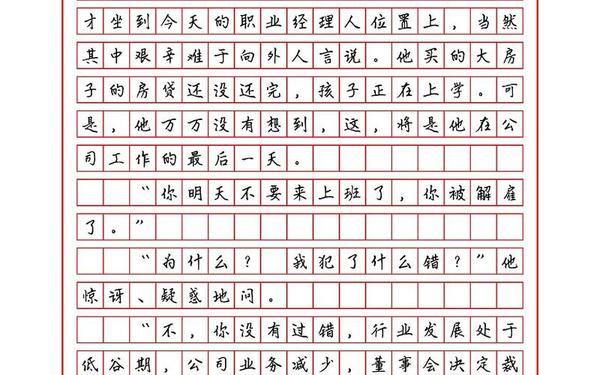 才坐到今天的职业经理人位置上，当然
其中艰辛难于向外人言说。他买的大房
子的房贷还没还完，孩子正在上学。可
是，他万万没有想到，这，将是他在公
司工作的最后一天。
“你明天不要来上班了，你被解雇
了。”
“为什么？ 我犯了什么错？”他
惊讶、疑惑地问。
“不，你没有过错，行业发展处于
低谷期，公司业务减少，董事会决定裁